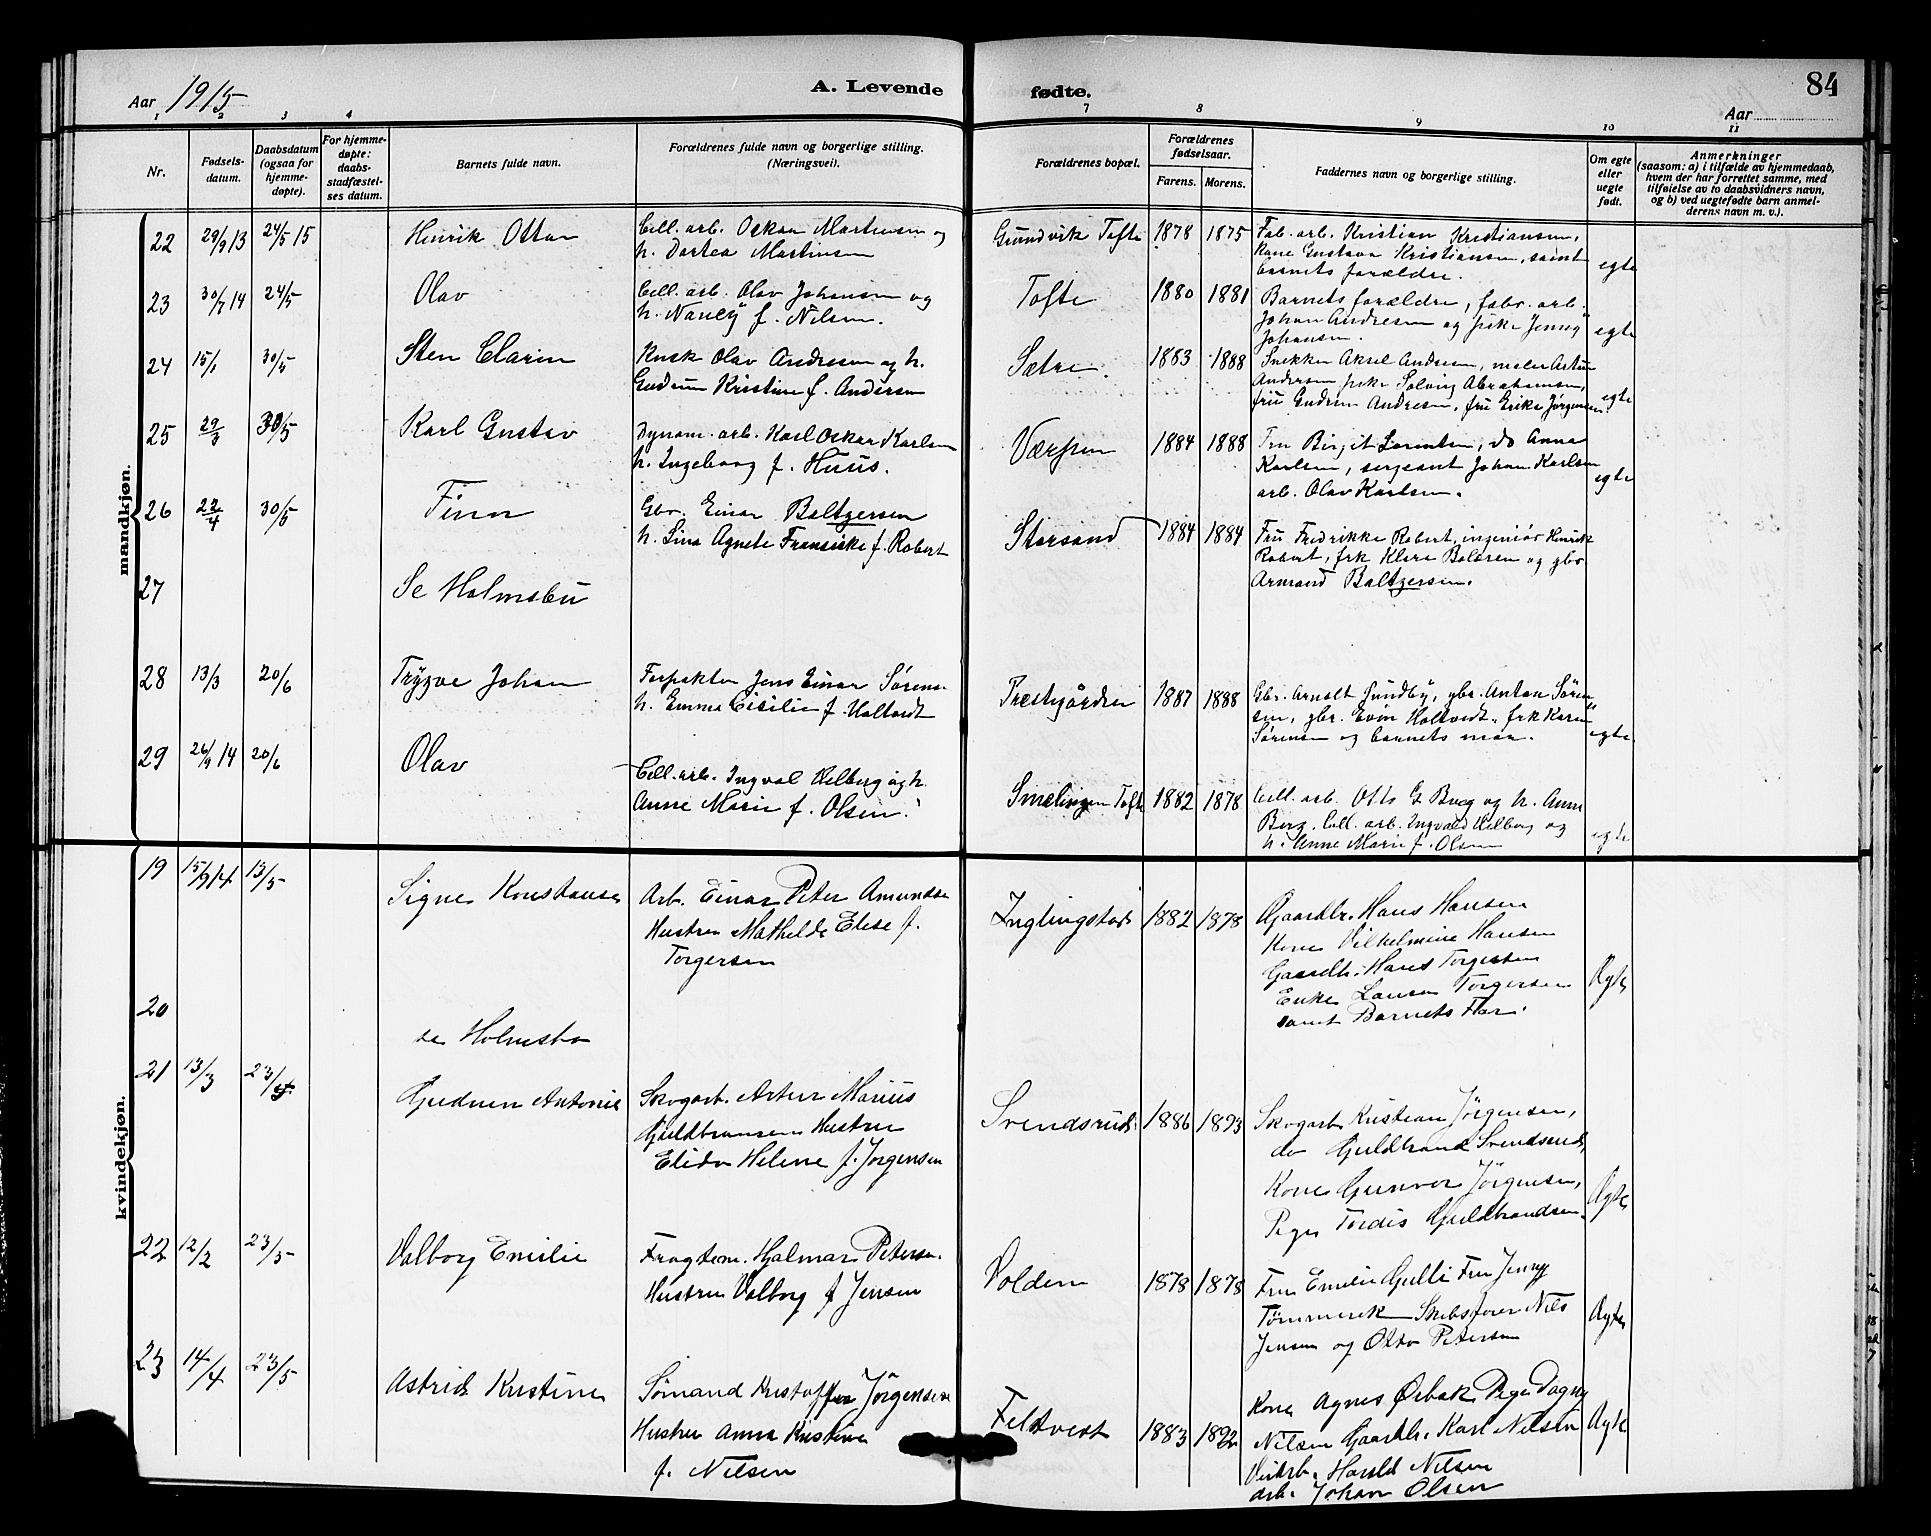 Aar 1915
A. Levende fødte.
84
Aar
1 2 3 4 7 8 9 10 11
Nr.
Fødsels-datum.
Daabsdatum (ogsaa for hjemme-døpte).
For hjemme-døpte: daabs-stadfæstel-ses datum.
Barnets fulde navn.
Forældrenes fulde navn og borgerlige stilling. (Næringsvei).
Forældrenes bopæl.
Forældrenes fødselsaar.
Farens. Morens.
Faddernes navn og borgerlige stilling.
Om egte eller uegte født.
Anmerkninger
(saasom: a) i tilfælde av hjemmedaab,
hvem der har forrettet samme, med
tilføielse av to daabsvidners navn,
og b) ved uegtefødte barn anmel-
derens navn m. v.).
mandkjøn.
22 29/9 13 24/5 15 Henrik Ottar
Cell. arb. Oskar Martinsen og
h. Dortea Martinsen
Grundvik Tofte 1878 1875
Fab. arb. Kristian Kristiansen,
Kone Gustava Kristiansen, samt
barnets forældre.
egte
23 30/7 14 24/5 Olav
Cell. arb. Olav Johansen og
h. Nancy f. Nilsen.
Tofte 1880 1881
Barnets forældre, fabr. arb.
Johan Andresen og pike Jenny
Johansen.
egte
24 15/1 30/5 Sten Clarin
Kusk Olav Andresen og h.
Gudrun Kristine f. Andersen
Sætre 1883 1888
Snekker Aksel Andresen, maler Artur
Andersen pike Solveig Abrahamsen,
fru Gudrun Andresen, fru Erika Jørgensen
egte
25 29/3 30/5 Karl Gustav
Dynam. arb. Karl Oskar Karlsen
h. Ingeborg f. Huus.
Værpen 1884 1888
Fru Birgit Lorentsen, do Anna
Karlsen, sergeant Johan Karlsen
arb. Olav Karlsen.
egte
26 22/4 30/5 Finn
Gbr. Einar Baltzersen
h. Lina Agnete Fransiske f. Robert
Storsand 1884 1884
Fru Fredrikke Robert, ingeniør Henrik
Robert, frk Klara Balsren og gbr
Armand Baltzersen.
27 Se Holmsbu
28 13/3 20/6 Trygve Johan
Forpakter Jens Einar Sørens.
h. Emma Cisilie f. Holtvedt
Prestegården 1887 1888
Gbr. Arnolt Sundby, gbr. Anton Søren
sen, gbr. Even Holtvedt, frk Karen
Sørensen og barnets mor.
egte.
29 26/9 14 20/6 Olav
Cell. arb. Ingval Helberg og h.
Anne Marie f. Olsen.
Smelingen Tofte 1882 1878
Cell. arb. Otto G Berg og h. Anna
Berg. Cell. arb. Ingvald Helberg og
h. Anne Marie f. Olsen
egte
kvindekjøn.
19 15/9 14 13/5 Signe Konstanse
Arb. Einar Peter Amundse
Hustru Mathilde Elise f.
Torgersen
Inglingstad 1882 1878
Gaardbr. Hans Hansen
Kone Vilhelmine Hansen
Gaardbr. Hans Torgersen
Enke Laura Torgersen
samt Barnets Far.
Ægte
20
se Holmsbo
21 13/3 23/5 Gudrun Antonie
Skogarb. Artur Marius
Guldbransen Hustru
Elida Helene f. Jørgensen
Svendsrud 1886 1893
Skogarb Kristian Jørgensen,
do Guldbrand Svendsrud,
Kone Gunvor Jørgensen,
Pige Tordis Guldbrandsen
Ægte
22 12/2 23/5 Valborg Emilie
Fragtem. Hjalmar Peterse.
Hustru Valborg f Jensen
Volden 1878 1878
Fru Emilie Gulli Fru Jenny
Tømmerek Skibsfører Nils
Jensen og Otto Petersen
Ægte
23 14/4 23/5 Astrid Kristine
Sømand Kristoffer Jørgensen
Hustru Anna Kristine
f. Nilsen
Feltvedt 1883 1892
Kone Agnes Ørbak Pige Dagny
Nilsen Gaardbr. Karl Nilsen
Veiarb. Harald Nilsen
arb. Johan Olsen
Ægte